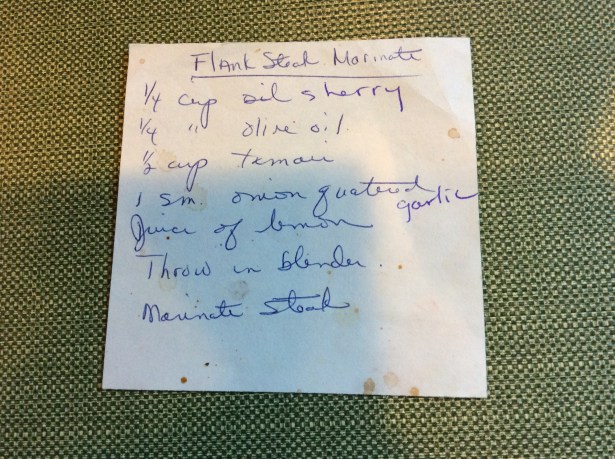 Flank Steak Marinate
1/4 cup oil sherry
1/4 " olive oil
1/2 cup Temari
1 sm. onion quatered garlic
Juice of lemon
Throw in blender.
Marinate steak